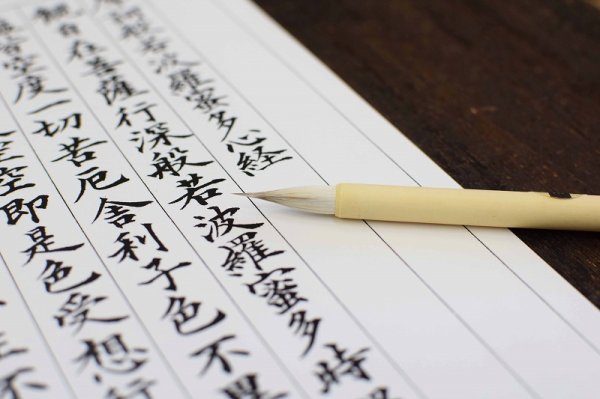 般若波羅蜜多心経
自在菩薩行深般若波羅蜜多時
空度一切苦厄舎利子色不異
空即是色受想行
不